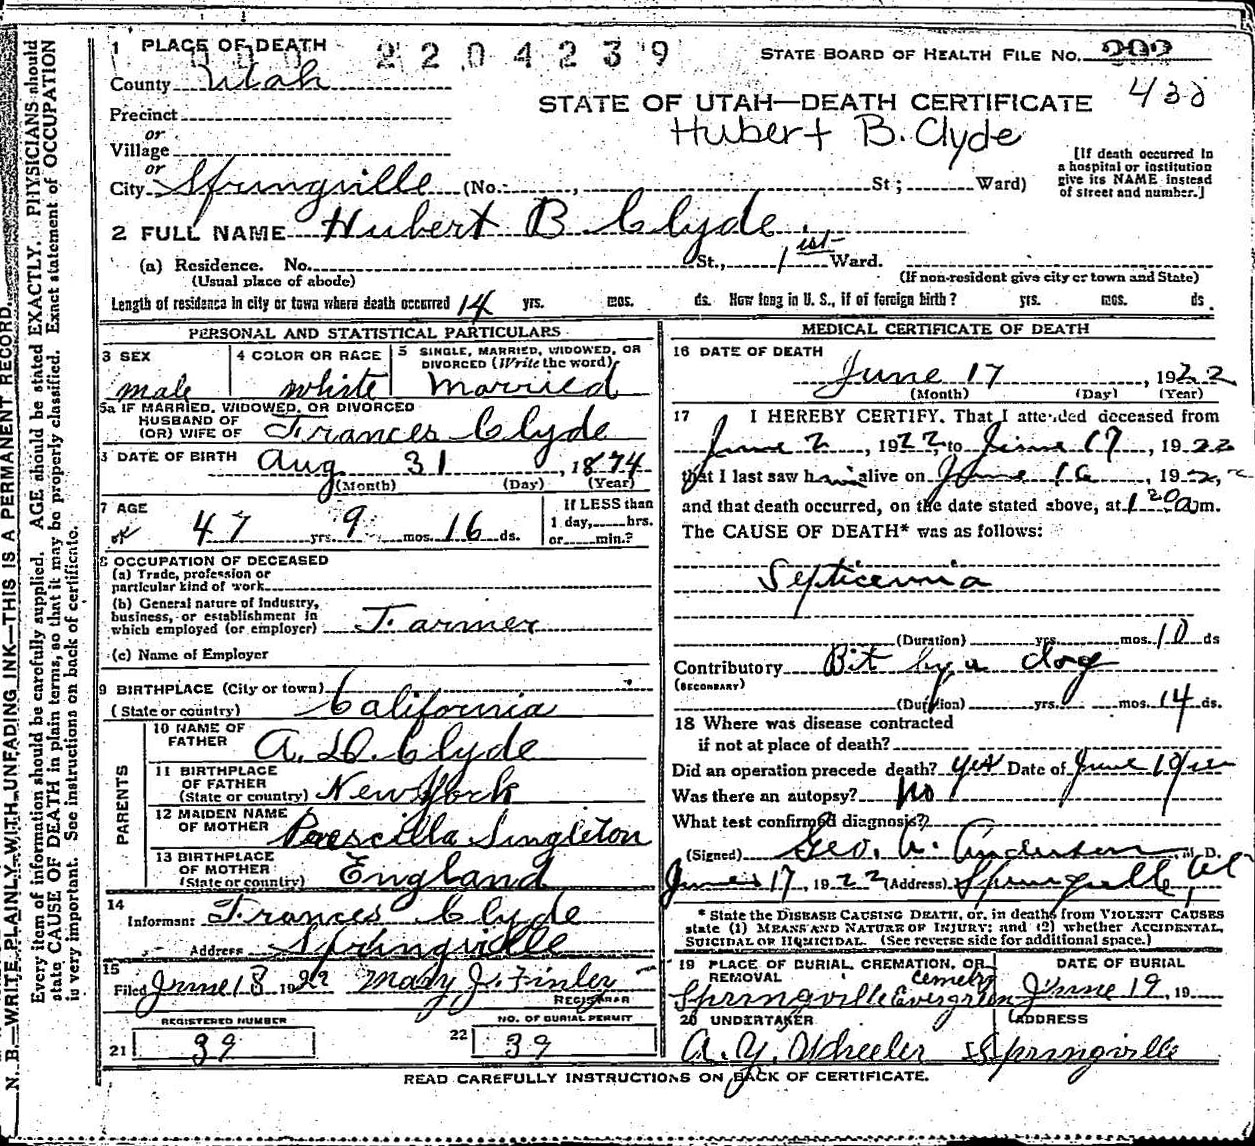 1 PLACE OF DEATH 2204239 STATE BOARD OF HEALTH FILE No. 292
County Utah 430
STATE OF UTAH—DEATH CERTIFICATE
Precinct
Hubert B. Clyde
or
Village
or
City Springville (No. , St; Ward)
[If death occurred in a hospital or institution give its NAME instead of street and number.]
2 FULL NAME Hubert B Clyde
(a) Residence. No. St., 1st Ward.
(Usual place of abode) (If non-resident give city or town and State)
Length of residence in city or town where death occurred 14 yrs. mos. ds. How long in U. S., if of foreign birth? yrs. mos. ds.
PERSONAL AND STATISTICAL PARTICULARS
3 SEX male
4 COLOR OR RACE white
5 SINGLE, MARRIED, WIDOWED, OR DIVORCED (Write the word) Married
5a IF MARRIED, WIDOWED, OR DIVORCED
HUSBAND OF
(OR) WIFE OF Frances Clyde
DATE OF BIRTH Aug 31, 1874
(Month) (Day) (Year)
7 AGE 47 yrs. 9 mos. 16 ds.
If LESS than 1 day, hrs. or min.?
8 OCCUPATION OF DECEASED
(a) Trade, profession or
particular kind of work
(b) General nature of Industry,
business, or establishment in
which employed (or employer) Farmer
(c) Name of Employer
9 BIRTHPLACE (City or town)
(State or country) California
PARENTS
10 NAME OF FATHER A. D. Clyde
11 BIRTHPLACE OF FATHER (State or country) New York
12 MAIDEN NAME OF MOTHER Prescilla Singleton
13 BIRTHPLACE OF MOTHER (State or country) England
14 Informant Frances Clyde
Address Springville
15 Filed June 18 1922 Mary J. Finley
REGISTRAR
REGISTERED NUMBER
21 39
NO. OF BURIAL PERMIT
22 39
MEDICAL CERTIFICATE OF DEATH
16 DATE OF DEATH
June 17, 1922
(Month) (Day) (Year)
17 I HEREBY CERTIFY, That I attended deceased from
June 2, 1922, to June 17, 1922
that I last saw him alive on June 16, 192
and that death occurred, on the date stated above, at 1 20 a.m.
The CAUSE OF DEATH* was as follows:
Septicemia
(Duration) yrs. mos. 10 ds
Contributory Bit by a dog
(SECONDARY)
(Duration) yrs. mos. 14 ds.
18 Where was disease contracted
if not at place of death?
Did an operation precede death? yes Date of June 10/22
Was there an autopsy? No
What test confirmed diagnosis?
(Signed) Geo. A. Anderson M. D.
June 17, 1922 (Address) Springville, Ut
* State the DISEASE CAUSING DEATH, or, in deaths from VIOLENT CAUSES
state (1) MEANS AND NATURE OF INJURY; and (2) whether ACCIDENTAL,
SUICIDAL OR HOMICIDAL. (See reverse side for additional space.)
19 PLACE OF BURIAL, CREMATION, OR REMOVAL
Springville Evergreen
DATE OF BURIAL
June 19, 19
20 UNDERTAKER
A. Y. Wheeler
ADDRESS
Springville
READ CAREFULLY INSTRUCTIONS ON BACK OF CERTIFICATE.
N. B.—WRITE PLAINLY, WITH UNFADING INK—THIS IS A PERMANENT RECORD.
Every item of information should be carefully supplied. AGE should be stated EXACTLY. PHYSICIANS should
state CAUSE OF DEATH in plain terms, so that it may be properly classified. Exact statement of OCCUPATION
is very important. See instructions on back of certificate.